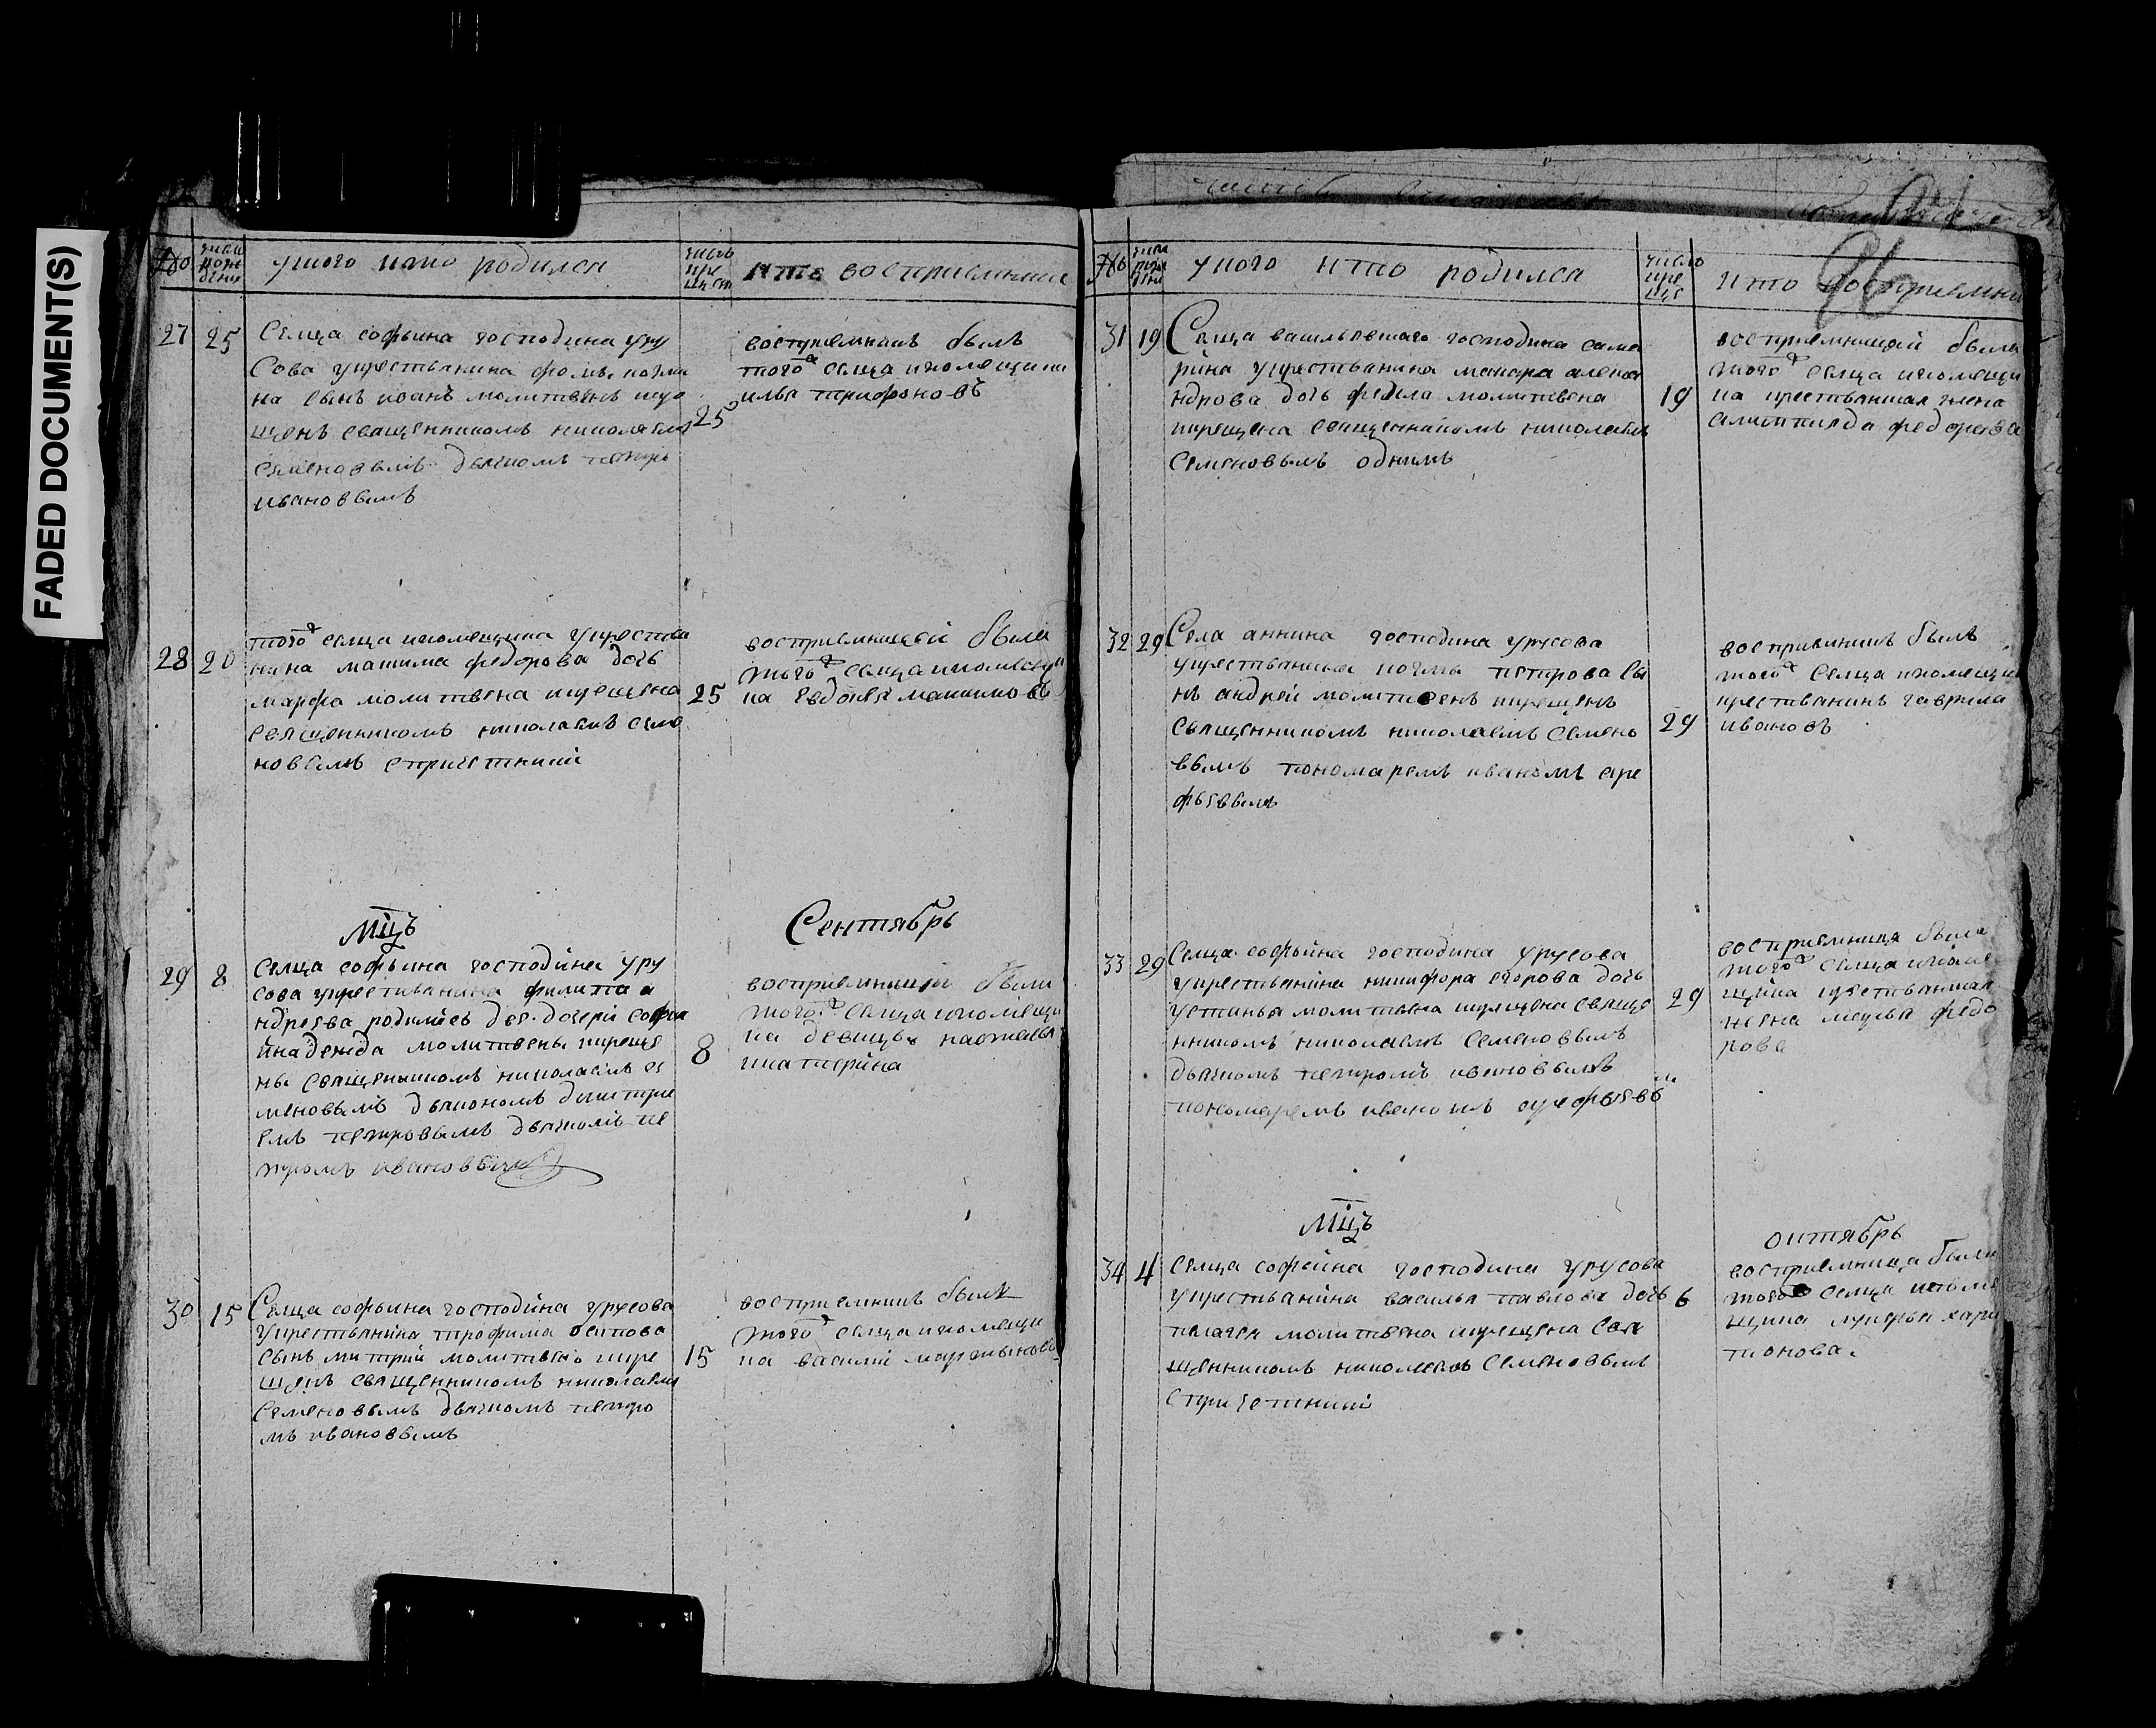 FADED DOCUMENT(S)
96
№
число рожде
дения
у кого и кто родился
число
кре
щен
и кто восприемники
27
25
Селца софьина господина уру
сова у крестьянина фомы козми
на сынъ иванъ молитвенъ кре
щенъ священникомъ николаемъ
семеновымъ дьячкомъ петро
ивановымъ
25
восприемникъ былъ
того селца и помещика
илья трифоновъ
28
20
того селца и помещика у крестья
нина максима федорова дочь
марфа молитвена крещена
священникомъ николаемъ семе
новымъ с причетники
25
восприемницей была
того селца и помещи
ка евдокея максимова
Мцъ
Сентябрь
29
8
Селца софьина господина уру
сова у крестьянина филипа а
ндреева родились две дочери софья
и надежда молитвены креще
ны священникомъ николаемъ се
меновымъ дьякономъ димитри
емъ петровымъ дьячкомъ пе
тромъ ивановымъ
8
восприемники были
того селца и помещи
ка девицы настасья
и катерина
30
15
Селца софьина господина урусова
у крестьянина трофима осипова
сынъ митрий молитвенъ кре
щенъ священникомъ николаемъ
семеновымъ дьячкомъ петро
мъ ивановымъ
15
восприемникъ былъ
того селца и помещи
ка василий мартыновъ
№
у кого и кто родился
число
кре
ще
и кто восприемни
31
19
Селца васильевского господина сама
рина у крестьянина макара алекса
ндрова дочь фекла молитвена
крещена священникомъ николаемъ
семеновымъ однимъ
19
восприемницей была
того селца и помещи
ка крестьянская жена
алимпиада федорова
32
29
Села аннина господина урусова
у крестьянина козмы петрова сы
нъ андрей молитвенъ крещенъ
священникомъ николаемъ семено
вымъ пономаремъ иваномъ аре
фьевымъ
29
восприемникъ былъ
того селца и помещик
крестьянинъ гаврила
ивановъ
33
29
Селца софьина господина урусова
у крестьянина никифора егорова дочь
устинья молитвена крещена свяще
нникомъ николаемъ семеновымъ
дьячкомъ петромъ ивановымъ
пономаремъ иваномъ арефьевы
м
29
восприемница была
того селца и поме
щика крестьянская
жена федо
рова
Мцъ
октябрь
34
4
Селца софьина господина урусова
у крестьянина василья павлова дочь
пелагея молитвена крещена свя
щенникомъ николаемъ семеновымъ
с причетники
6
восприемница была
того селца и поме
щика лукерья хари
тонова.